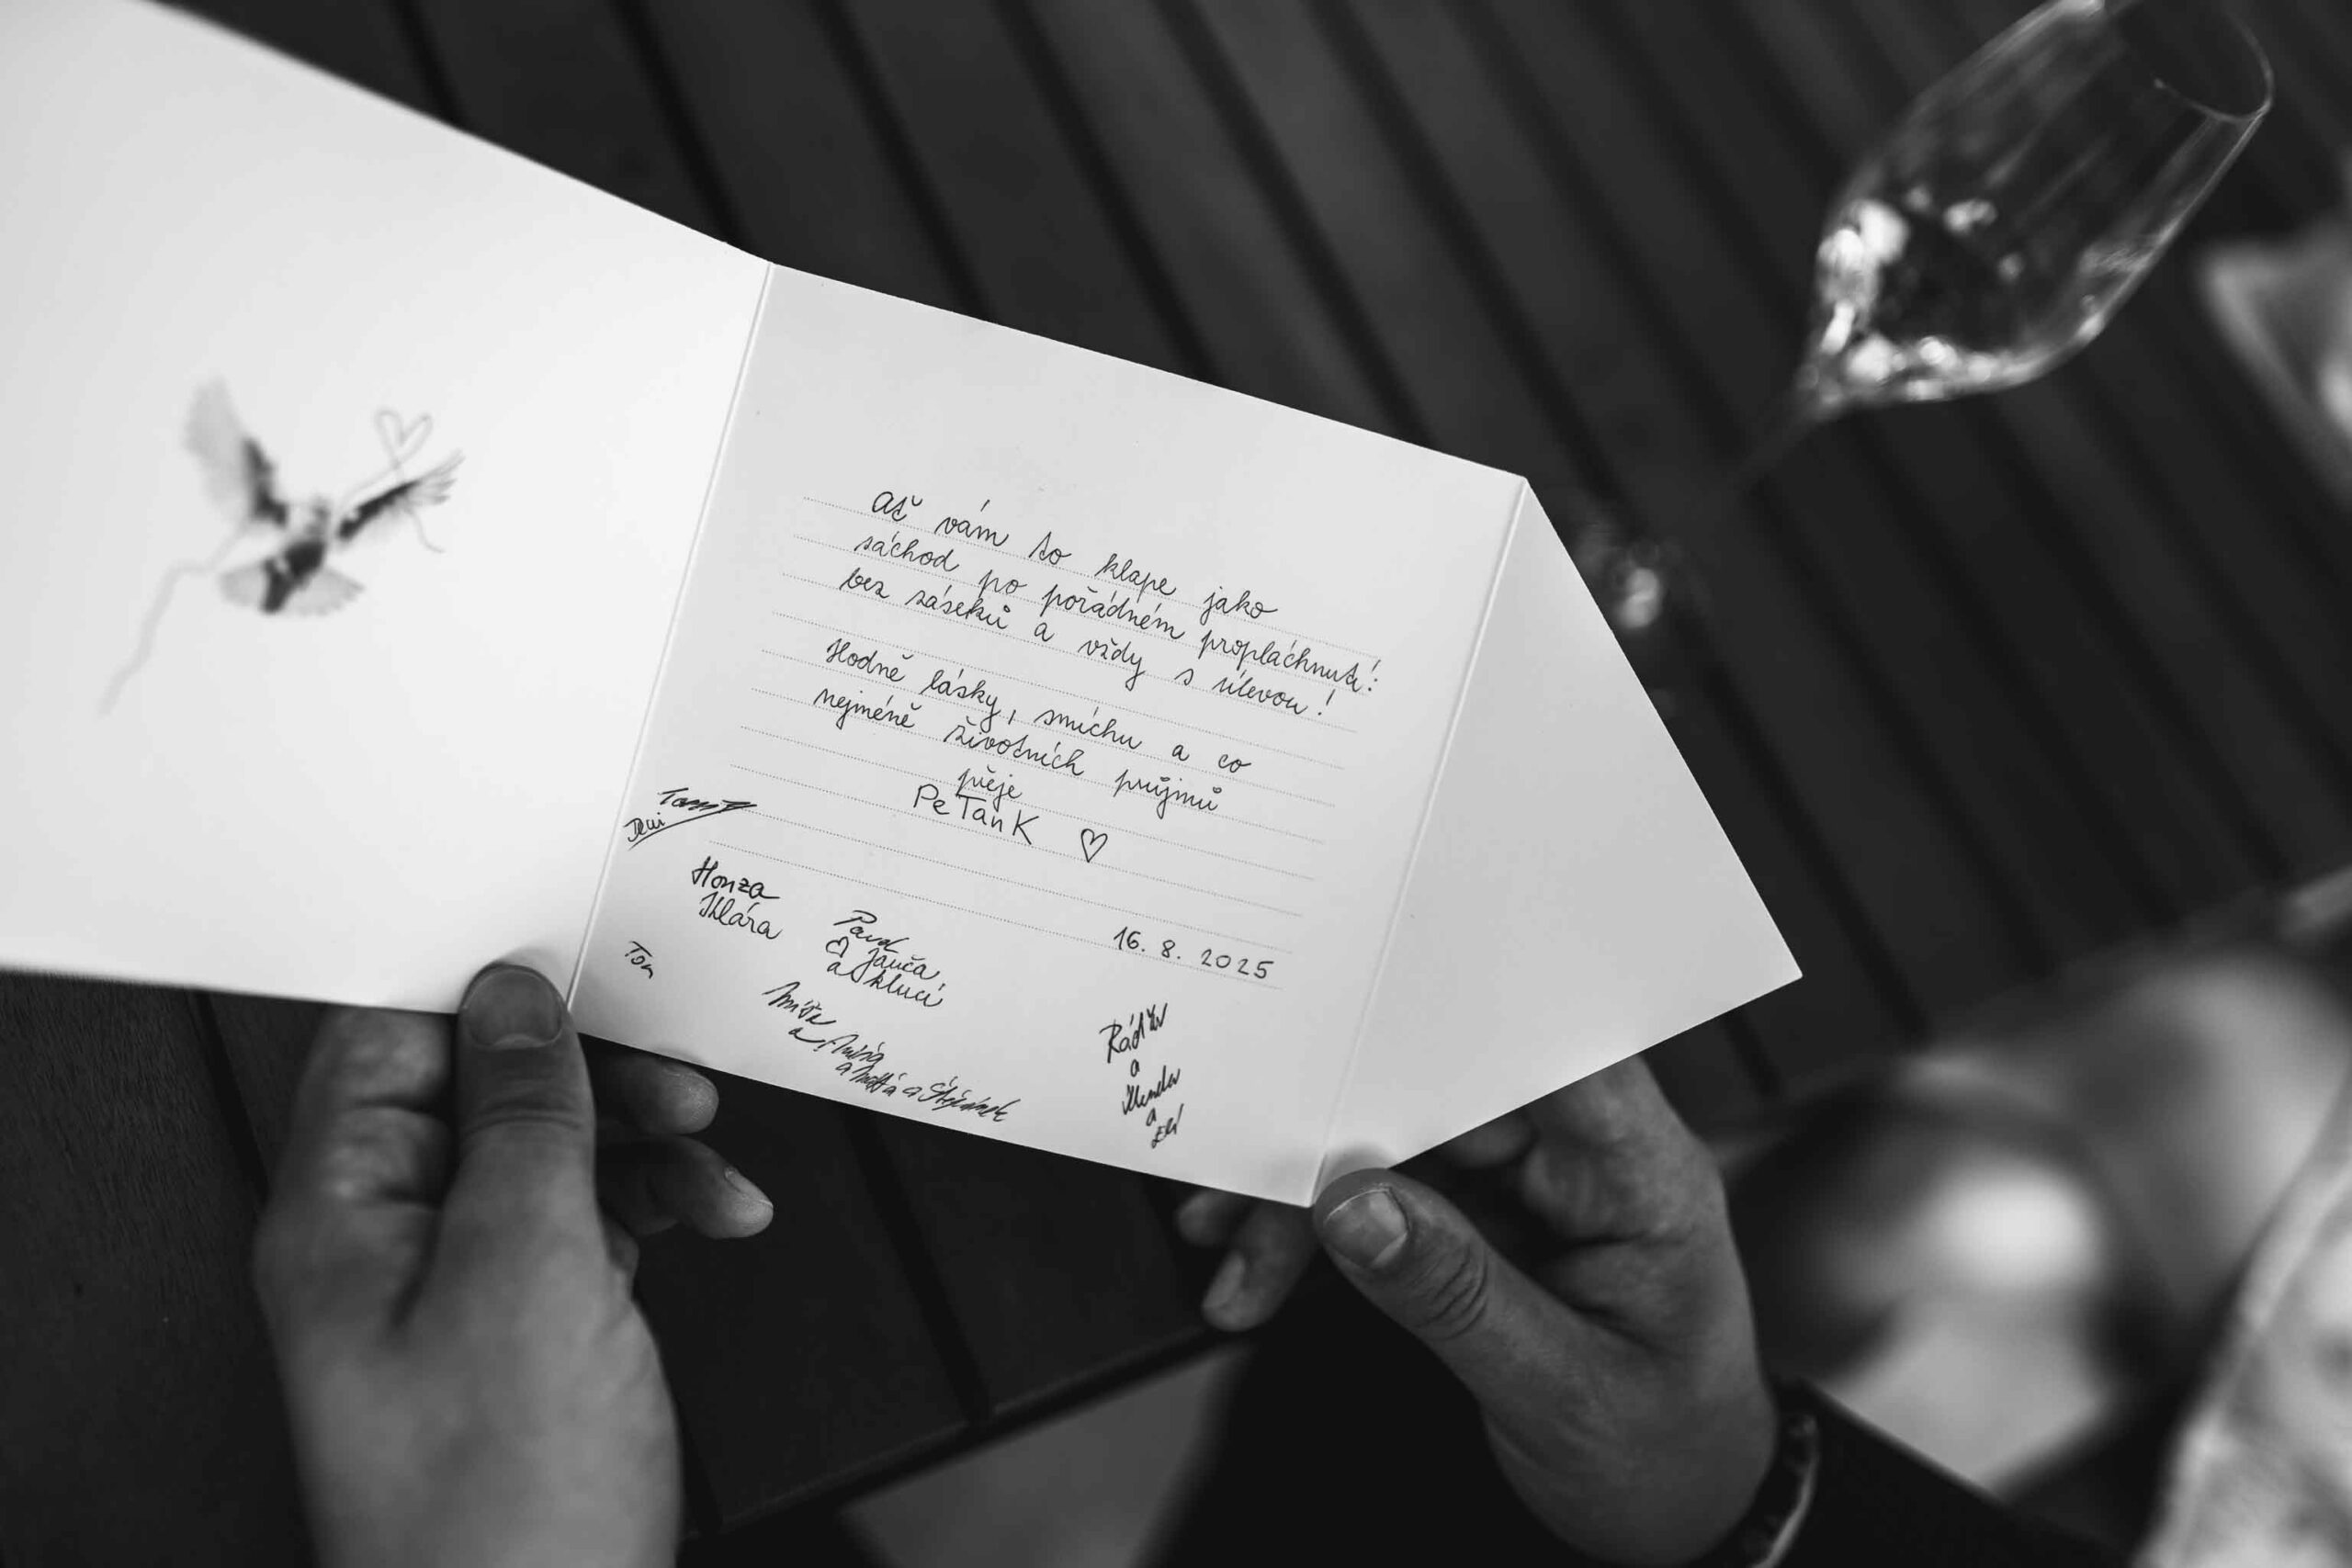 Ať vám to klape jako
záchod po pořádném propláchnutí:
bez záseků a vždy s úlevou!
Hodně lásky, smíchu a co
nejméně životních průjmů
přeje
PeTanK ♡
16. 8. 2025
Honza
Klára
Tom
Pavel
a kluci
a
a
a